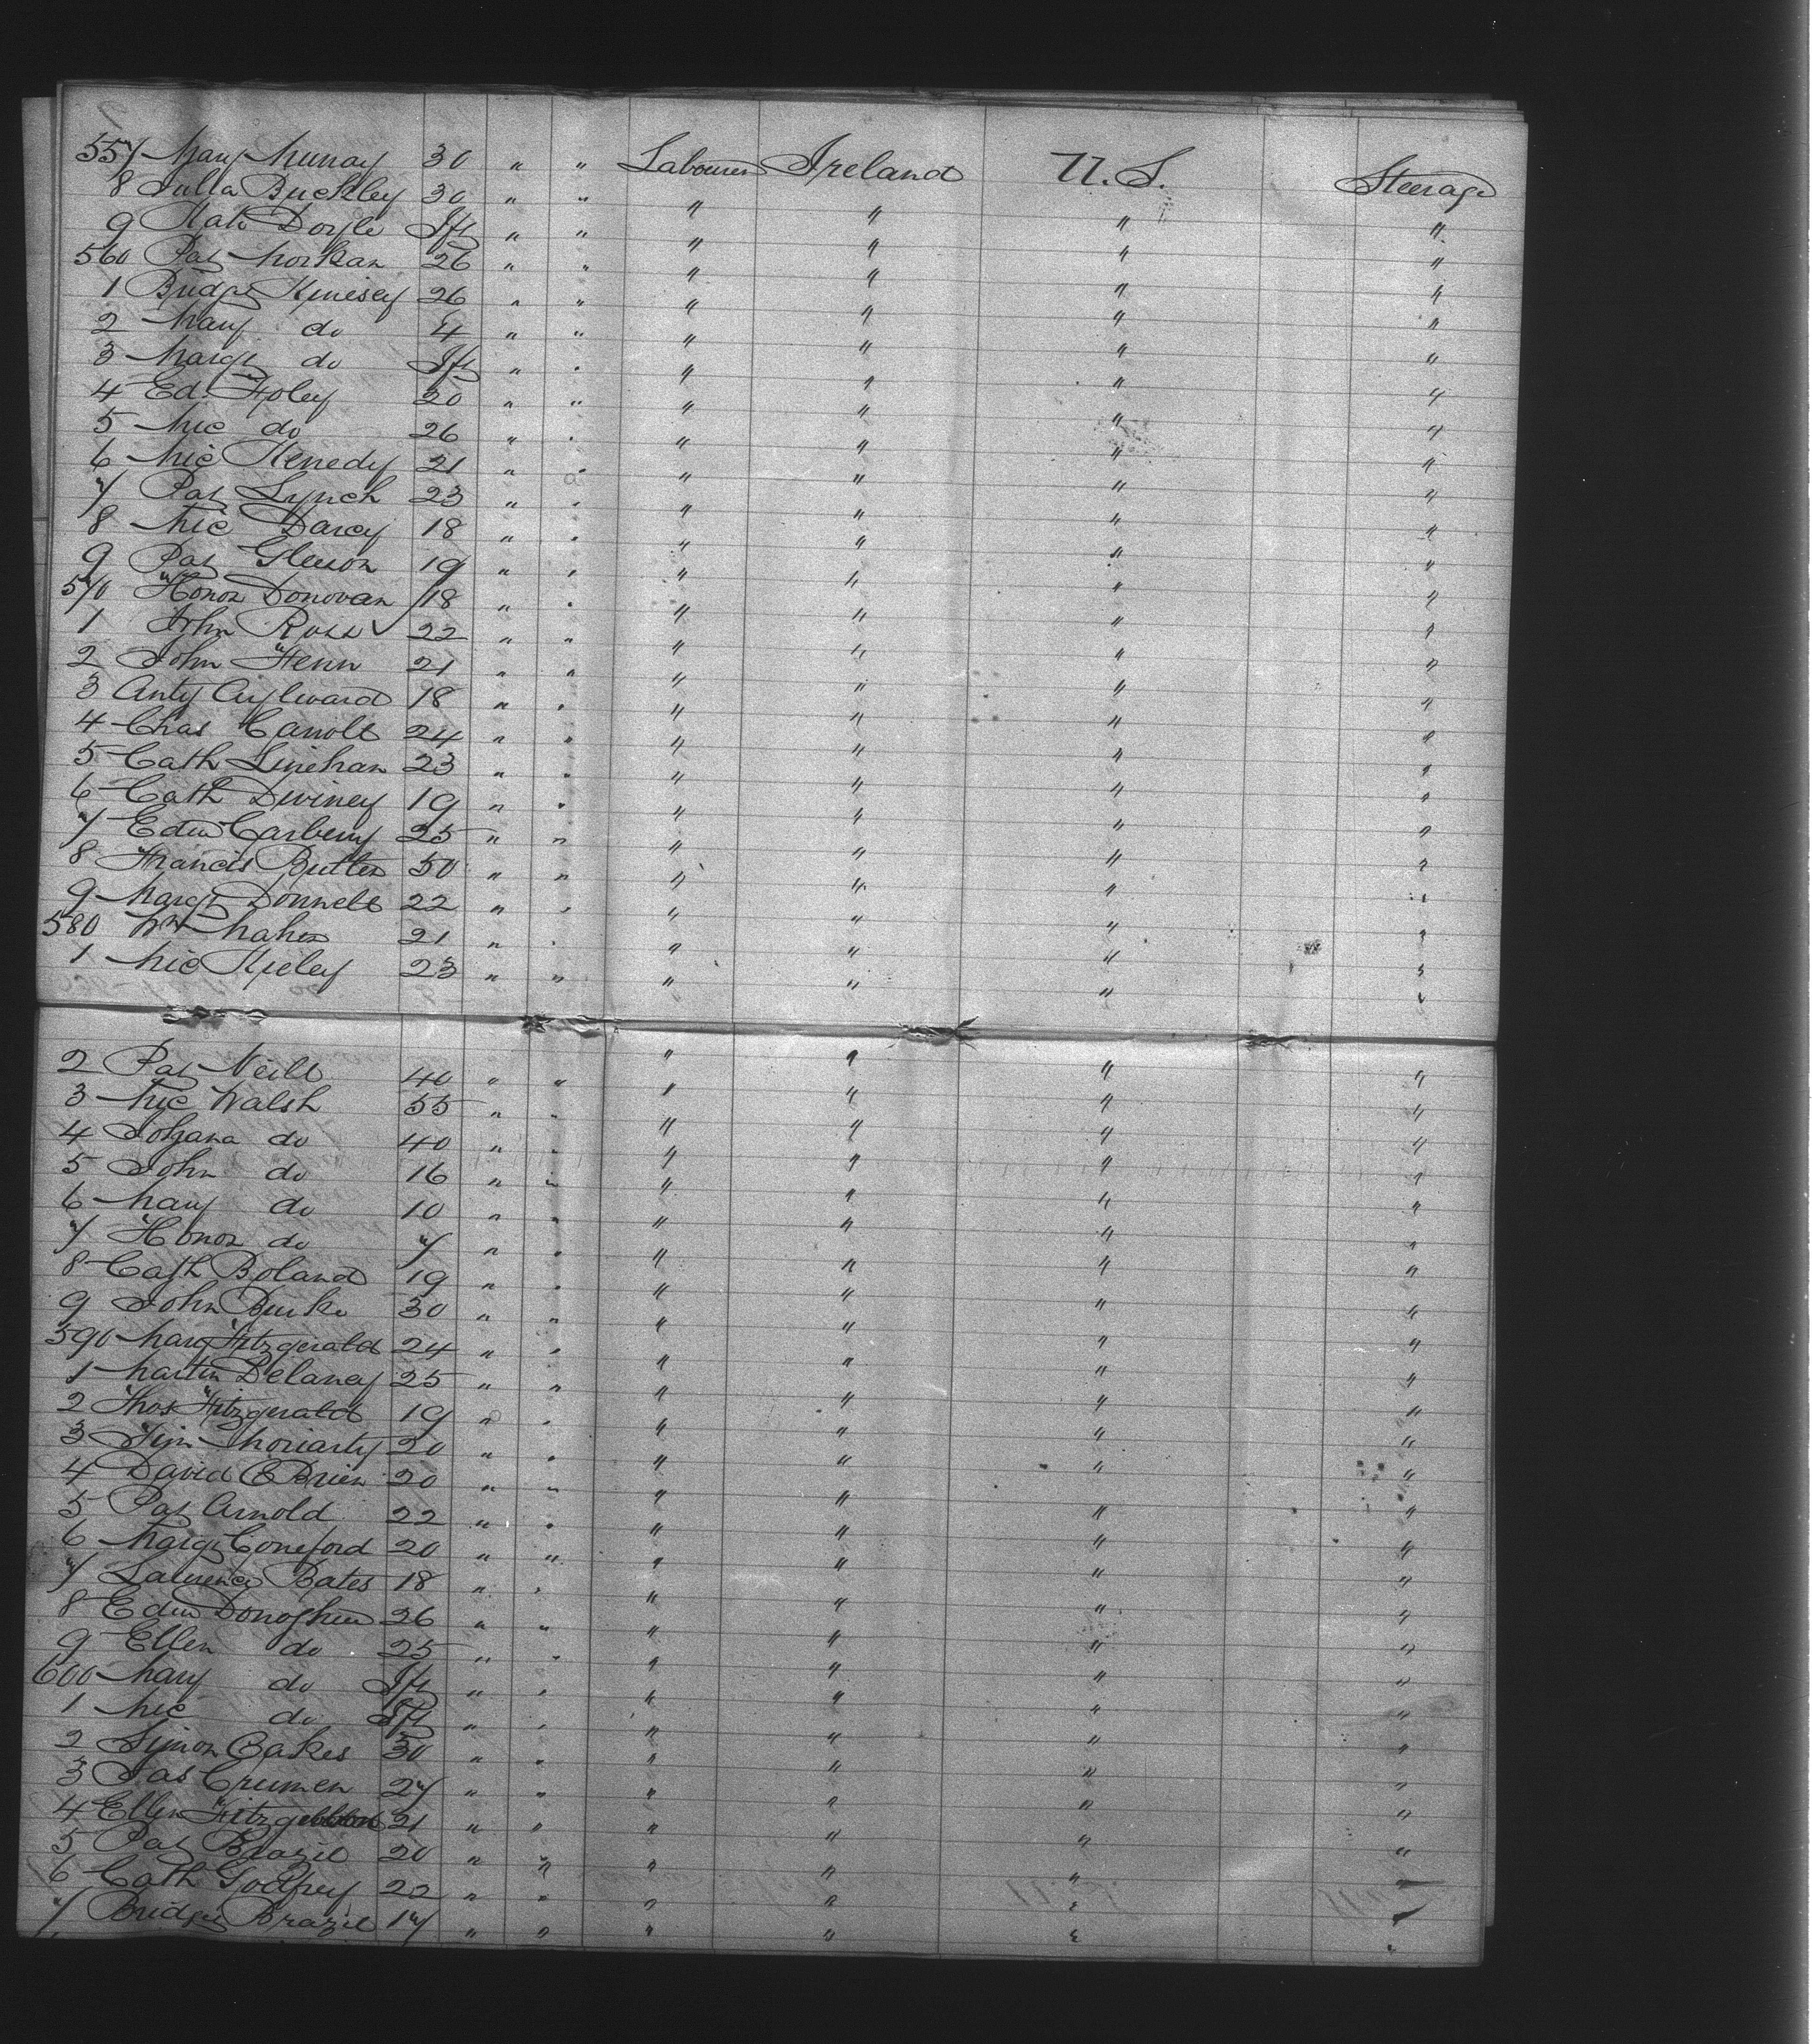 557 Mary Murray 30 " " Labourer Ireland U.S. Steerage
8 Julia Buckley 30 " " " " " "
9 Kate Doyle Ift " " " " " "
560 Pat Horkan 26 " " " " " "
1 Bridgt Kinesey 26 " " " " " "
2 Mary do 4 " " " " " "
3 Margt do Ift " " " " " "
4 Ed. Foley 20 " " " " " "
5 Mic do 26 " " " " " "
6 Mic Kenedy 21 " " " " " "
7 Pat Lynch 23 " " " " " "
8 Mic Darcy 18 " " " " " "
9 Pat Gleeson 19 " " " " " "
570 Honor Donovan 18 " " " " " "
1 John Ross 22 " " " " " "
2 John Fenn 21 " " " " " "
3 Anty Aylward 18 " " " " " "
4 Chas Carroll 24 " " " " " "
5 Cath Linehan 23 " " " " " "
6 Cath Diviney 19 " " " " " "
7 Edw Carberry 25 " " " " " "
8 Francis Butler 50 " " " " " "
9 Margt Donnell 22 " " " " " "
580 Wm Maher 21 " " " " " "
1 Mic Kieley 23 " " " " " "
2 Pat Neill 40 " " " " " "
3 Mic Walsh 55 " " " " " "
4 Johana do 40 " " " " " "
5 John do 16 " " " " " "
6 Mary do 10 " " " " " "
7 Honor do 7 " " " " " "
8 Cath Boland 19 " " " " " "
9 John Burke 30 " " " " " "
590 Mary Fitzgerald 24 " " " " " "
1 Martin Delaney 25 " " " " " "
2 Thos Fitzgerald 19 " " " " " "
3 Tim Moriarty 20 " " " " " "
4 David OBrien 20 " " " " " "
5 Pat Arnold 22 " " " " " "
6 Margt Comeford 20 " " " " " "
7 Laurence Bates 18 " " " " " "
8 Edw Donoghue 26 " " " " " "
9 Ellen do 25 " " " " " "
600 Mary do Ift " " " " " "
1 Mic do Ift " " " " " "
2 Simon Oakes 30 " " " " " "
3 Jas Crumen 27 " " " " " "
4 Ellen Fitzgibbon 21 " " " " " "
5 Pat Brazil 20 " " " " " "
6 Cath Godfrey 22 " " " " " "
7 Bridget Brazil 17 " " " " " "